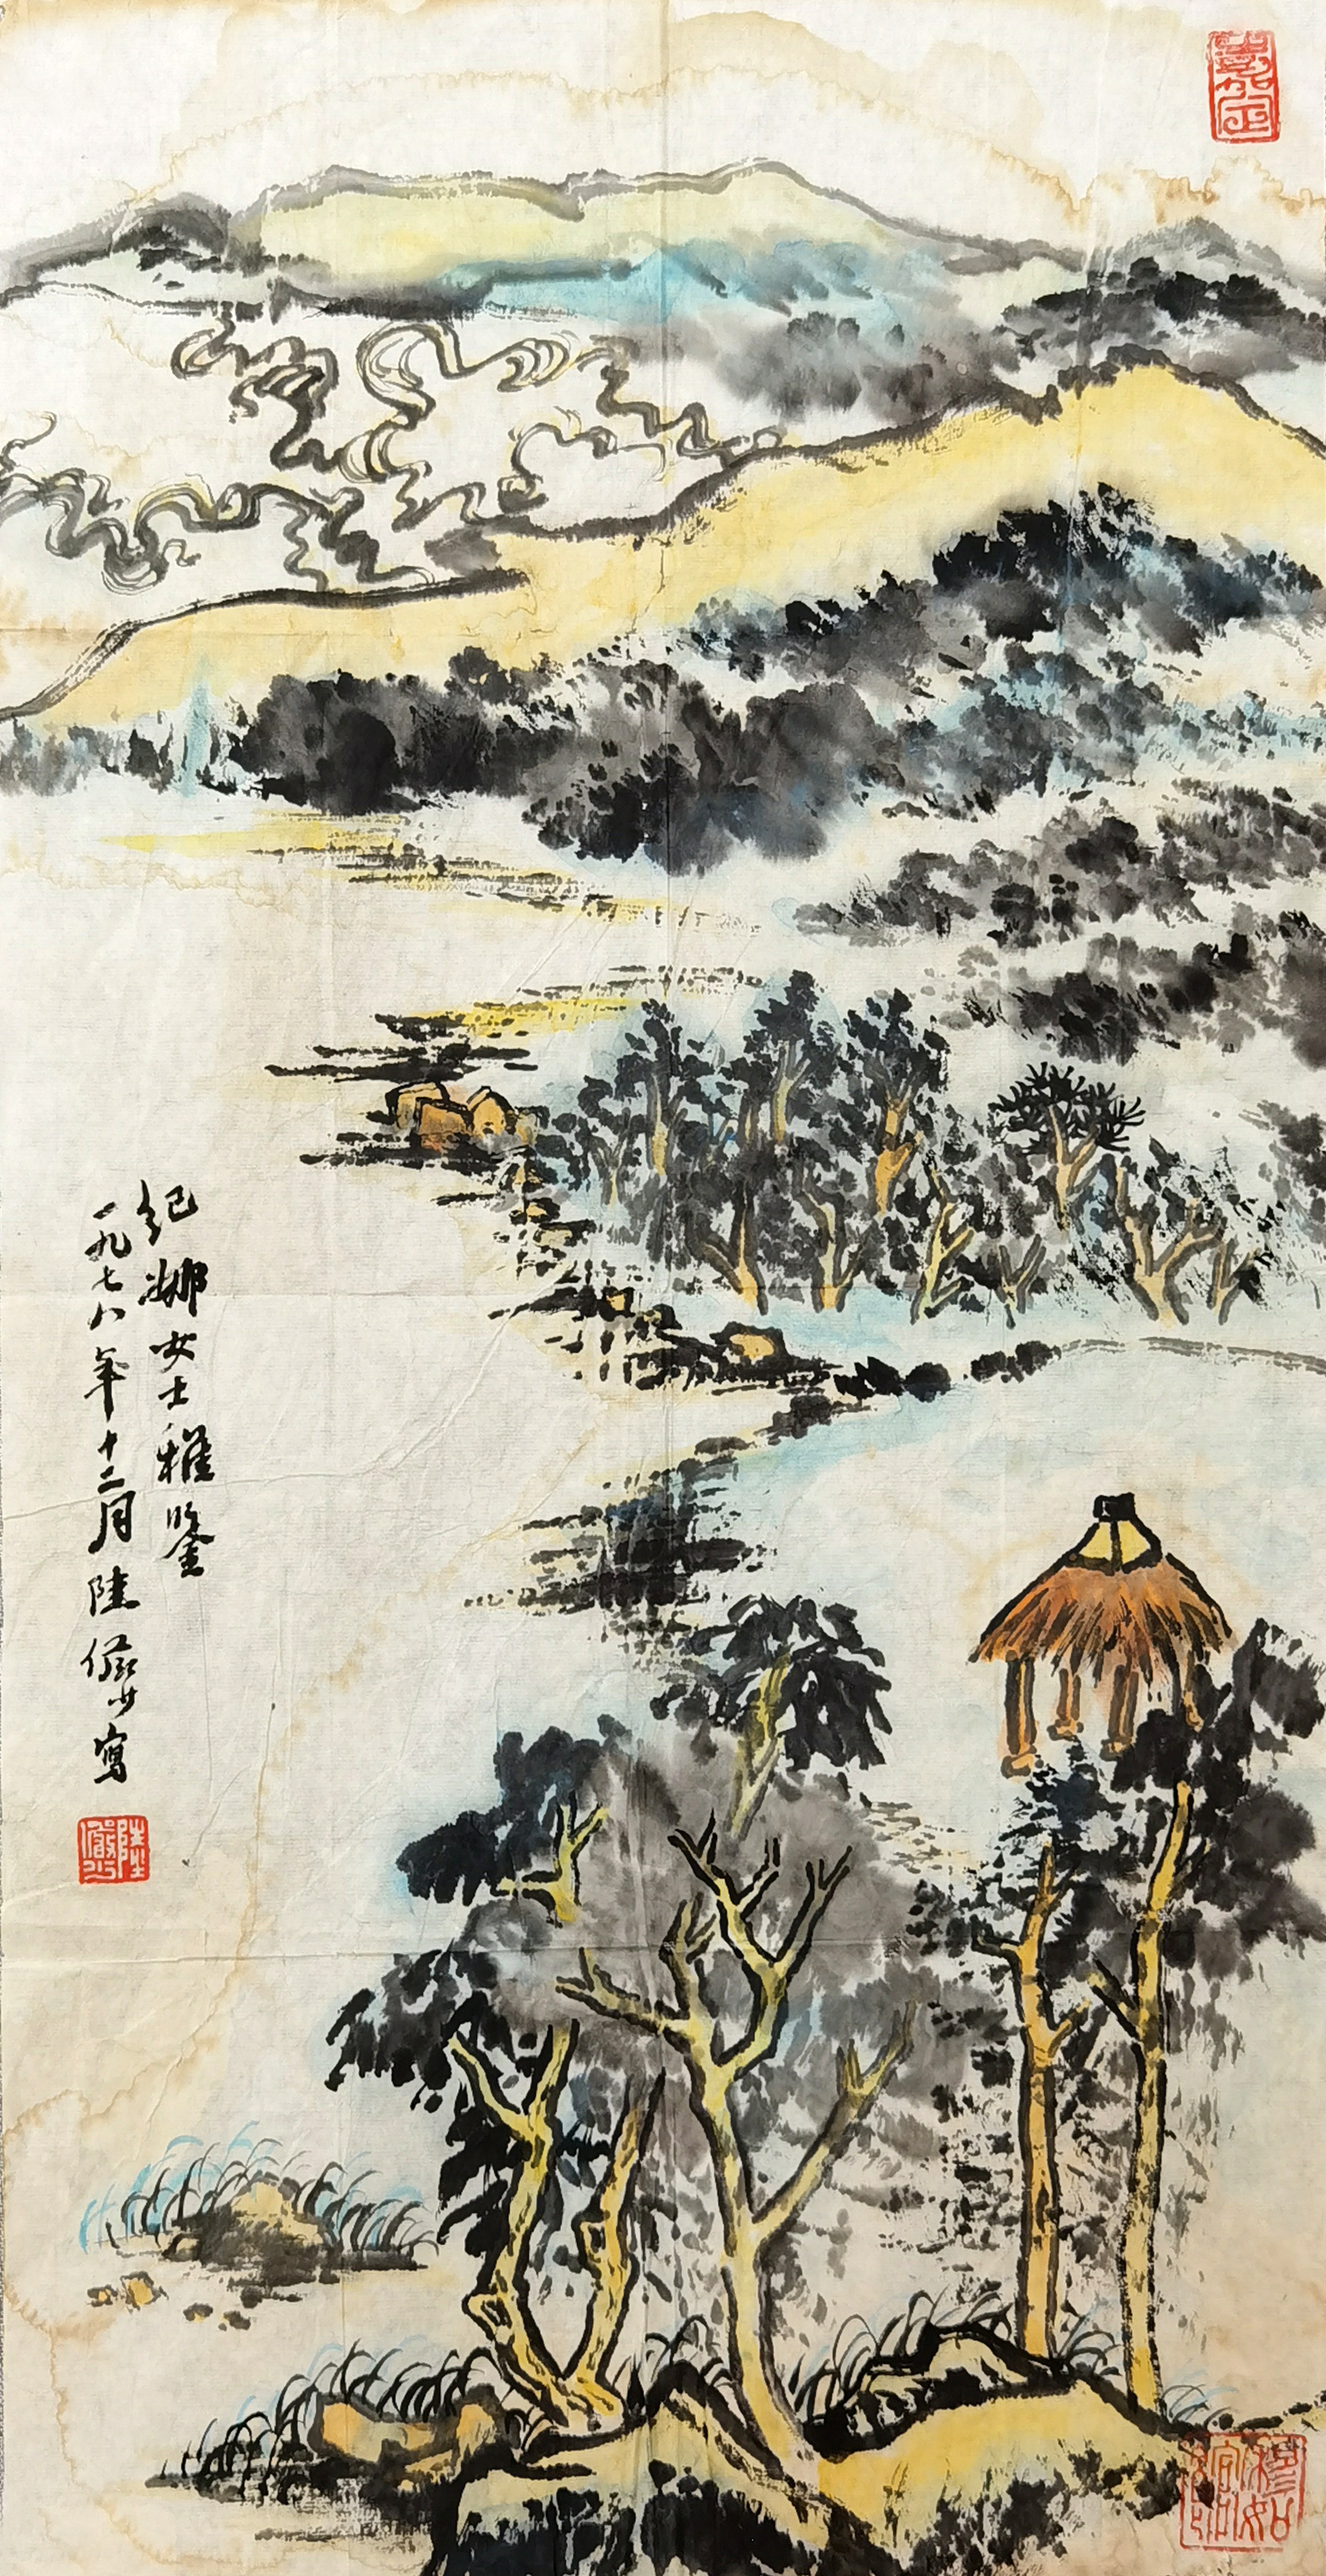 嘉定
纪娜女士雅鉴
一九七八年十二月陆俨少写
陆俨少
穆如